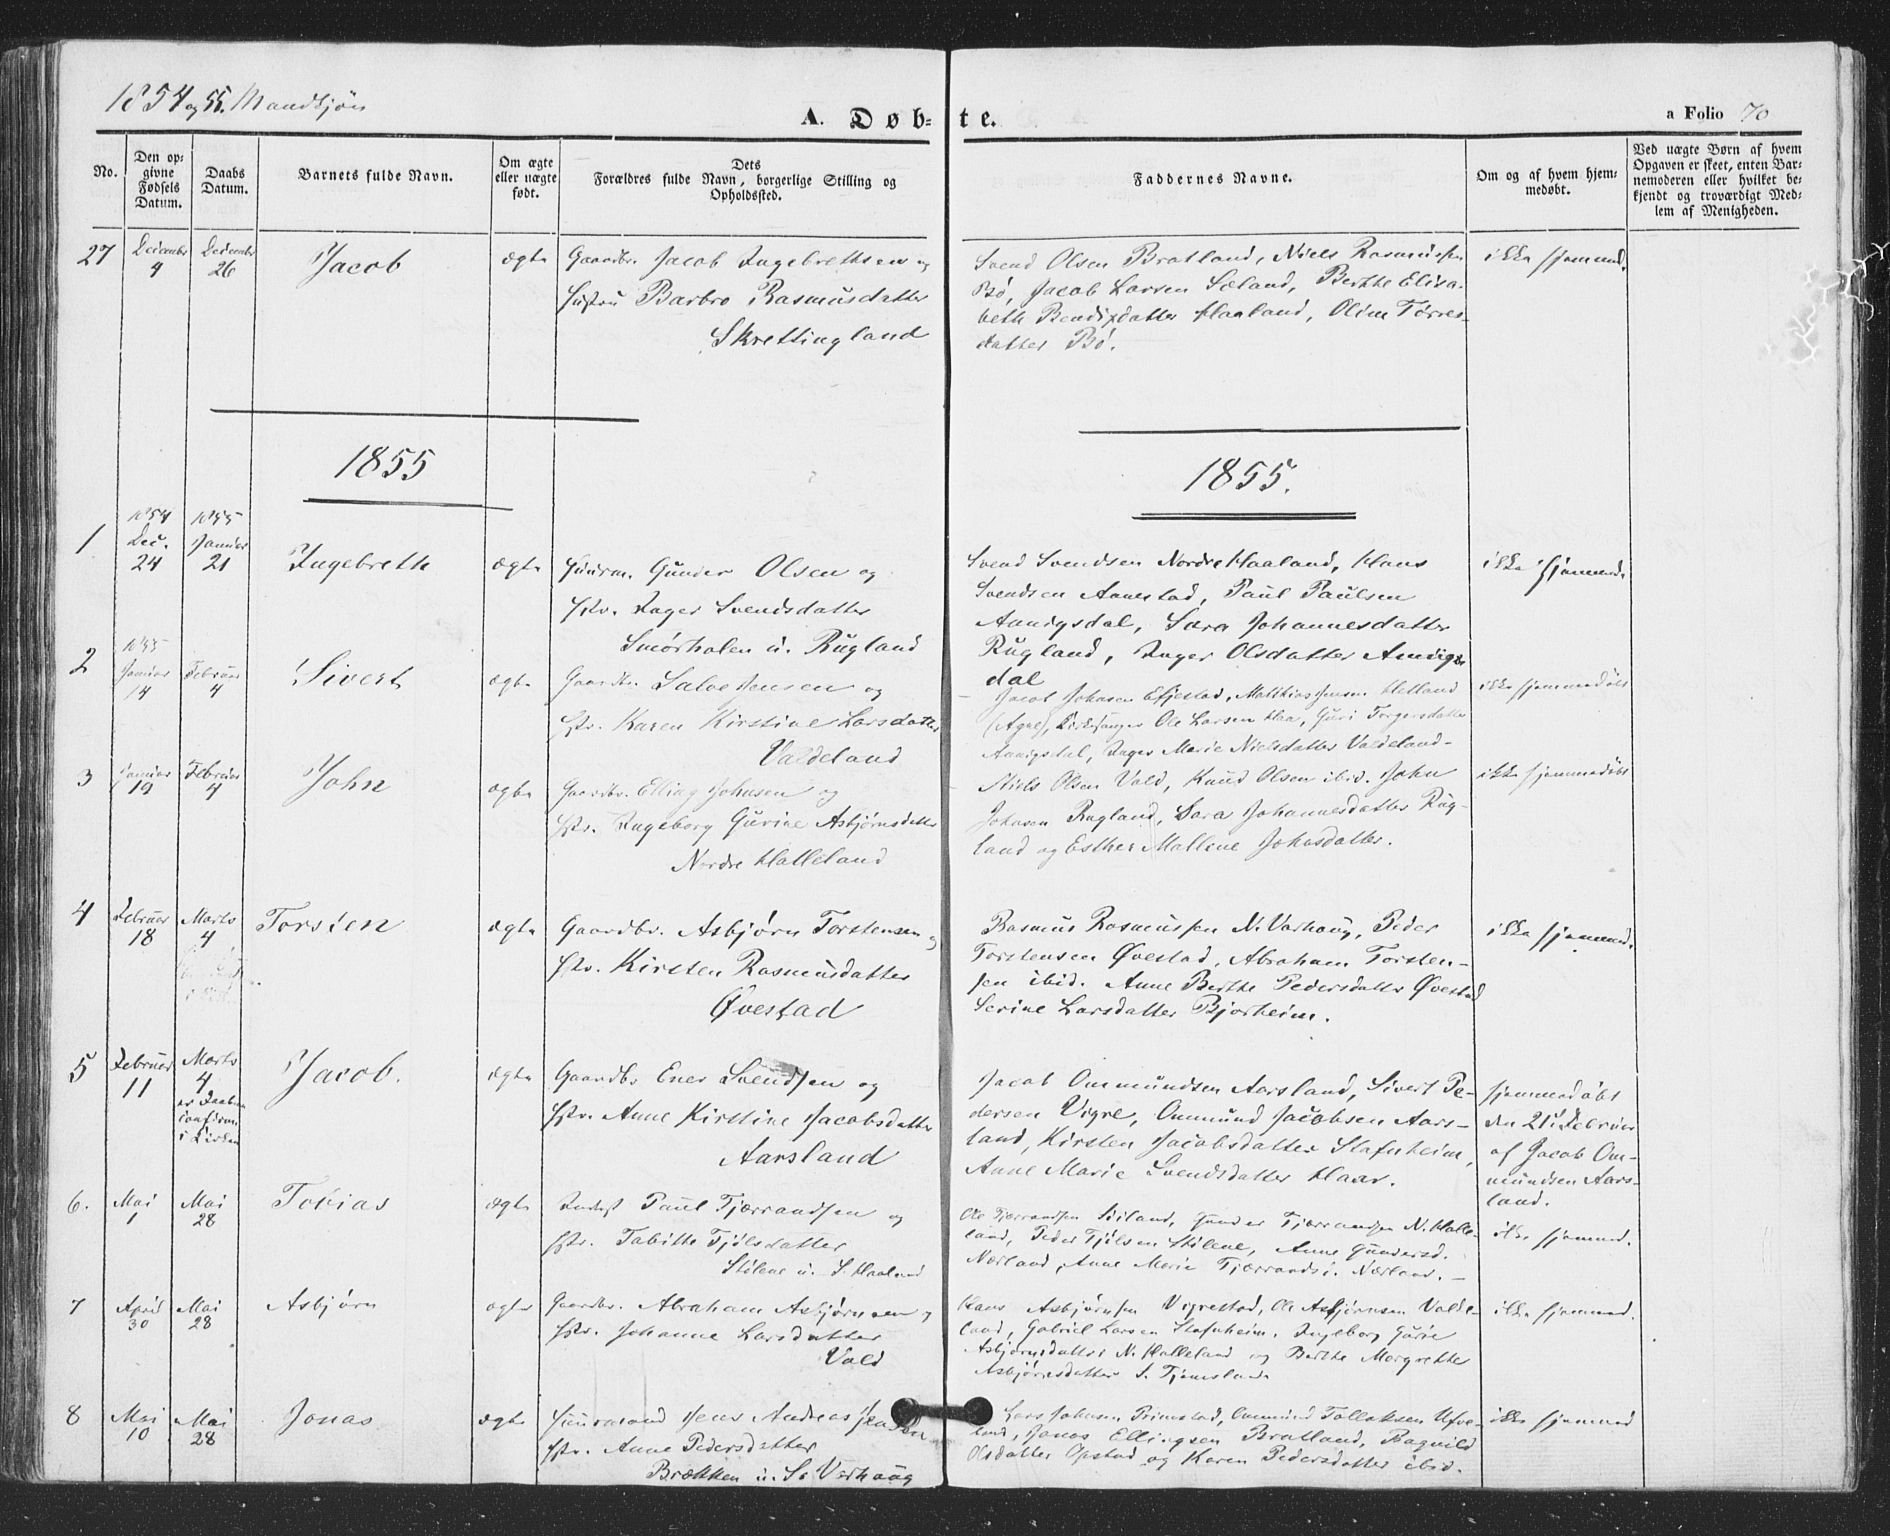 1854 og 55. Mandkjøn
A. Døbte.
a Folio 70
No.
Den opgivne Fødsels Datum.
Daabs Datum.
Barnets fulde Navn.
Om ægte eller uægte født.
Dets Forældres fulde Navn, borgerlige Stilling og Opholdssted.
Faddernes Navne.
Om og af hvem hjemmedøbt.
Ved uægte Børn af hvem Opgaven er skeet, enten Barnemoderen eller hvilket bekjendt og troværdigt Medlem af Menigheden.
27 December 4 December 26 Jacob ægte
Gaardbr. Jacob Ingebrethsen og
Hustru Barbro Rasmusdatter
Skrettingland
Svend Olsen Bratland, Niels Rasmussen
Bø, Jacob Larsen Sæland, Berthe Elisa-
beth Bendixdatter Haaland, Oline Tørres-
datter Bø.
ikke hjemmed.
1855
1855.
1 1854 Dec. 24 1855 Januar 21 Ingebreth ægte
Huusm. Gunder Olsen og
Hstr. Inger Svendsdatter
Smørholen u. Rugland
Svend Svendsen Nordre Haaland, Hans
Svendsen Annestad, Paul Paulsen
Aanigsdal, Sara Johannesdatter
Rugland, Inger Olsdatter Anigs-
dal
ikke hjemmed.
2 1855 Januar 14 Februar 4 Sivert ægte
Gaardbr. Salve Jensen og
Hstr. Karen Kirstine Larsdatter
Valdeland
Jacob Johnsen Efjestad, Mathias Jensen Hetland
(Agne), Kirkesanger Ole Larsen Haa, Guri Torgersdatter
Aanigsdal, Inger Marie Nielsdatter Valdeland-
ikke hjemmedøbt
3 Januar 19 Februar 4 John ægte
Gaardbr. Elling Johnsen og
Hstr. Ingeborg Gurine Asbjørnsdatter
Nordre Halleland
Niels Olsen Vold, Knud Olsen ibid. John
Johnsen Rugland, Sara Johannesdatter Rug-
land og Esther Mallene Johnsdatter.
ikke hjemmedøbt
4 Februar 18 Marts 4 Torsten ægte
Gaardbr. Asbjørn Torstensen og
Hstr. Kirsten Rasmusdatter
Øvestad
Rasmus Rasmussen N. Varhoug, Peder
Torstensen Øvestad, Abraham Torsten-
sen ibid. Anne Berthe Pedersdatter Øvestad
Serine Larsdatter Bjorheim.
ikke hjemmed.
5 Februar 11 Marts 4 er Daaben confirm. i Kirken Jacob. ægte
Gaardbr Ener Svendsen og
Hstr. Anne Kirstine Jacobsdatter
Aarsland
Jacob Ommundsen Aarsland, Sivert Pe-
dersen Vigre, Ommund Jacobsen Aars-
land, Kirsten Jacobsdatter Stafnheim,
Anne Marie Svendsdatter Haar.
hjemmedøbt
den 21 Februar
af Jacob Om-
mundsen Aars-
land.
6. Mai 1 Mai 28 Tobias ægte
Inderst Paul Tjærrandsen og
Hstr. Tabitte Tjølsdatter
Stølene u. S. Haaland
Ole Tjærrandsen Stiland, Gunder Tjærrandsen N. Halle-
land, Peder Tjølsen Stølene, Anne Gundersd.
Nærland, Anne Marie Tjærrandsd. Nærland.-
ikke hjemmed.
7 April 30 Mai 28 Asbjørn ægte
Gaardbr. Abraham Asbjørnsen og
Hstr. Johanne Larsdatter
Vold
Hans Asbjørnsen Vigrestad, Ole Asbjørnsen Valde-
land, Gabriel Larsen Stafnheim, Ingeborg Gurie
Asbjørnsdatter N. Halleland og Berthe Margrethe
Asbjørnsdatter S. Tjemsland.
ikke hjemmed.
8 Mai 10 Mai 28 Jonas ægte
Huusmand Jens Andreas Jensen
Hstr. Anne Pedersdatter
Brækken u. S. Varhoug
Lars Johnsen Primstad, Ommund Tollaksen Ufve-
land, Jonas Ellingsen Bratland, Ragnild
Olsdatter Opstad og Karen Pedersdatter ibid.
ikke hjemmed